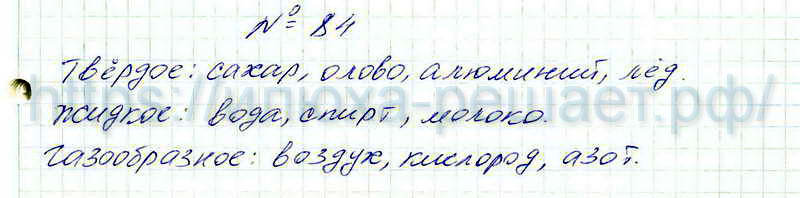 № 84
Твёрдое: сахар, олово, алюминий, лёд.
https://илюха-решает.рф/
Жидкое: вода, спирт, молоко.
Газообразное: воздух, кислород, азот.